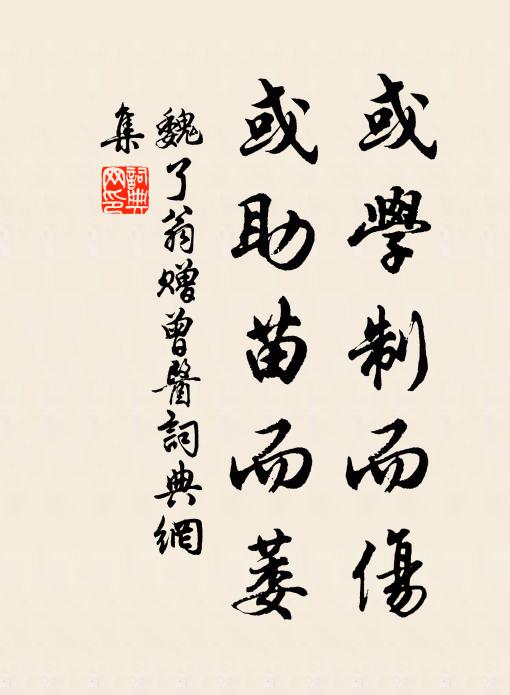 或學制而傷
或助苗而萎
魏了翁贈曾醫詞典網
集
詞典網印